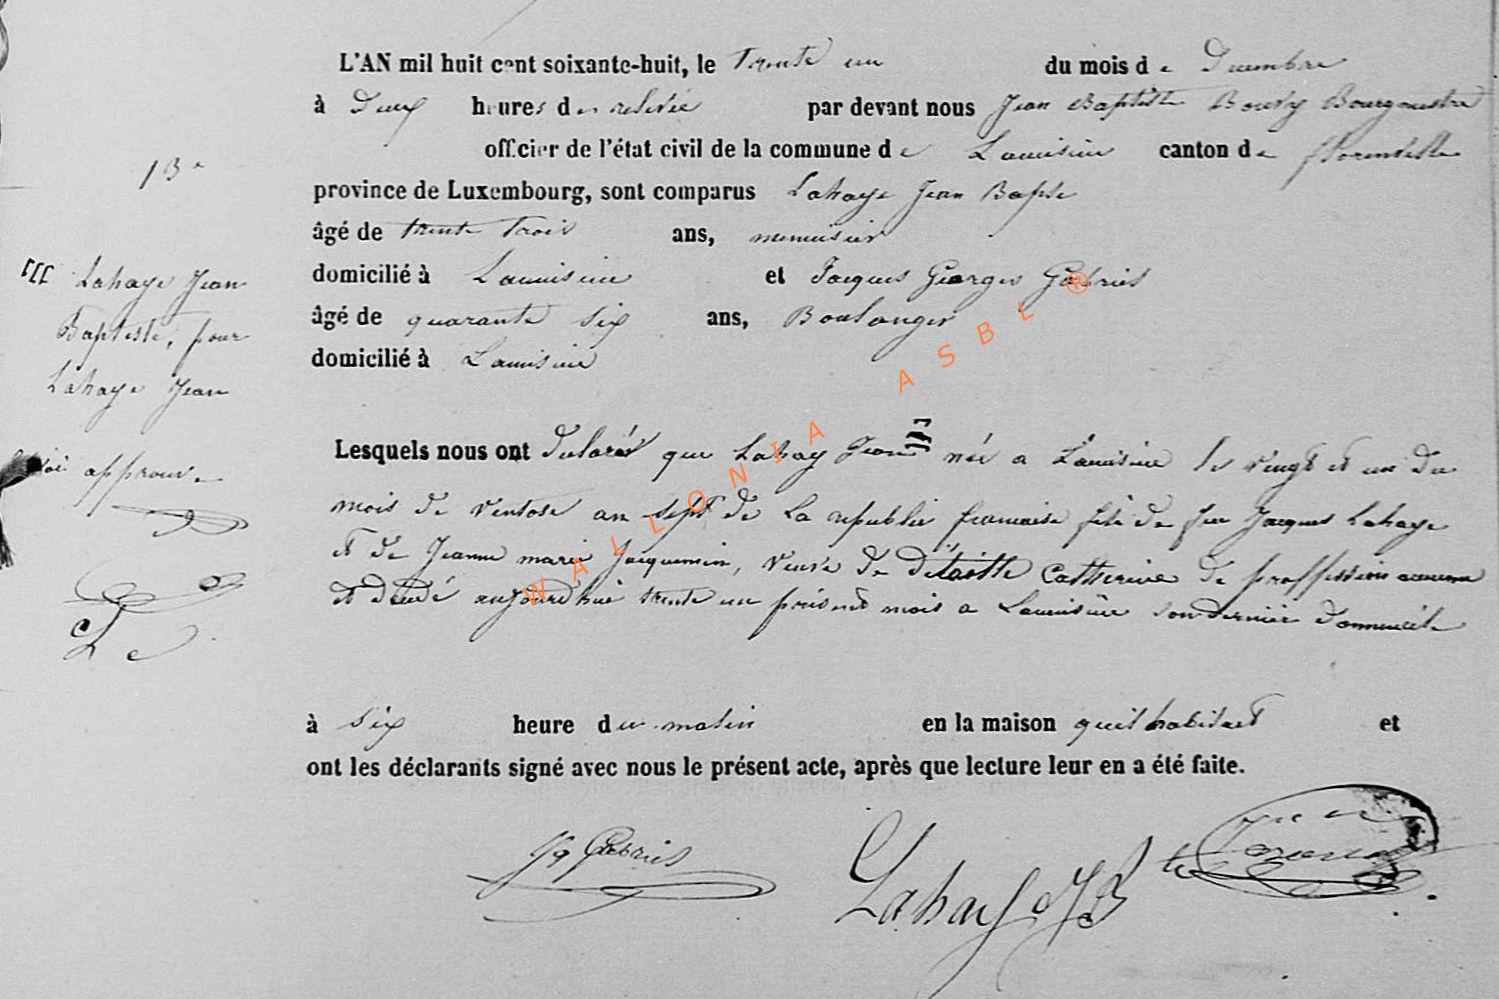 L'AN mil huit cent soixante-huit, le Trente un du mois de Decembre
à Deux heures de relevée par devant nous Jean Baptiste Bourgmestre
officier de l'état civil de la commune de canton de florenville
province de Luxembourg, sont comparus Lahaye Jean Bapte
âgé de trente trois ans, menuisier
domicilié à et Jacques Georges Gabriel
âgé de quarante six ans, Boulanger
domicilié à
13e
Lahaye Jean
Baptiste, pour
Lahaye Jean
approuvé
Lesquels nous ont declarés que Lahay Jean née a le vingt et un du
mois de ventose an sept de La republie francaise fils de feu Jacques Lahaye
et de Jeanne marie Jacquemin, veuve de Catherine de proffession
et décédé aujourd'hui trente un présent mois a son dernier
à six heure du matin en la maison quil habitaet et
ont les déclarants signé avec nous le présent acte, après que lecture leur en a été faite.
Jq Gabriel
Lahaye JB
WALLONIA ASBL ®